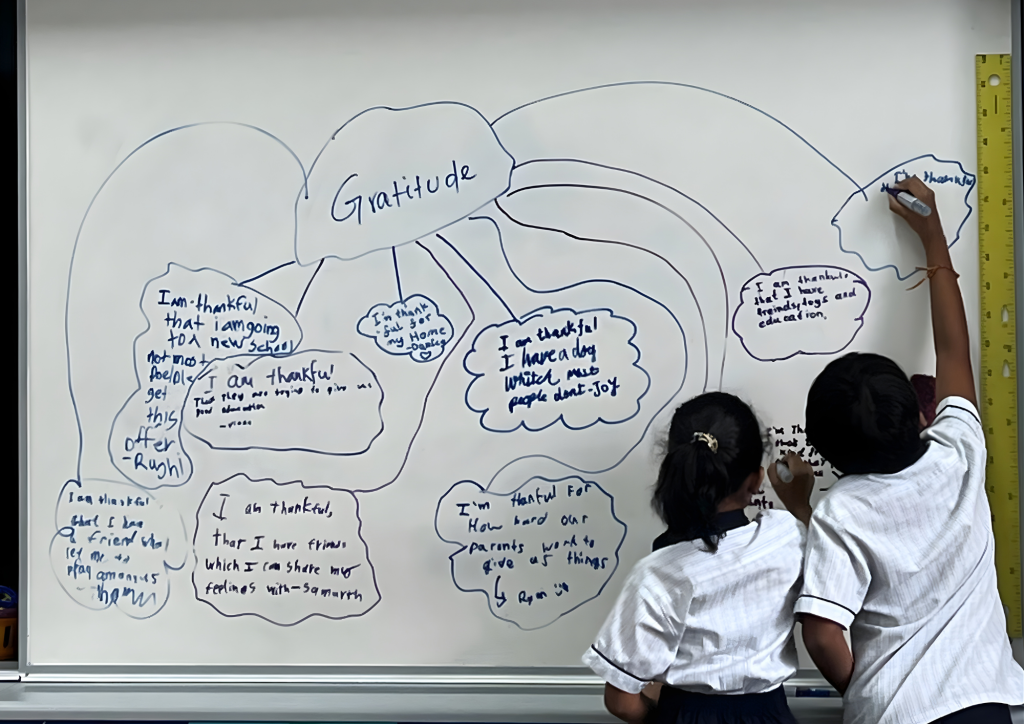 Gratitude
I am thankful
that i am going
to a new school
not most
people
get
this
offer
-Rughi
I am thankful
That they are trying to give us
good education
I'm thank
ful for
my Home
I am thankful
I have a dog
whitch most
people dont-Joy
I am thankful
that I have
freinds, toys and
education.
I'm thankful
I am thankful
that I have
a friend that
let me to
play amongus
I am thankful,
that I have friends
which I can share my
feelings with-Samarth
I'm thanful For
How hard our
parents work to
give us things
Ryan